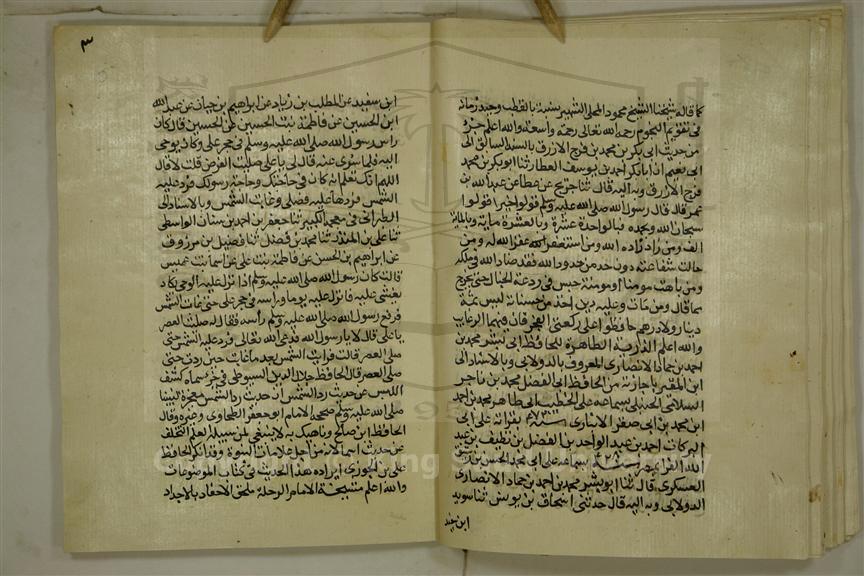 كما قاله شيخنا الشيخ محمود المحلي الشهير سبته بالقطب وحيد زمانه
في تقويم النجوم رحمه الله تعالى رحمة واسعة والله اعلم جزء
من حديث ابي بكر بن محمد بن فرج الازرق بالسند السابق الى
ابي نعيم ان ابا بكر احمد بن يوسف العطار ثنا ابو بكر محمد
فرج الازرق وبه اليه قال ثنا جريج عن عطا عن عبد الله بن
عمر قال قال رسول الله صلى الله عليه وسلم قولوا خيرا قولوا
سبحان الله وبحمده فبالواحدة عشرة وبالعشرة ماية وبالماية
الف ومن زاد زاده الله ومن استغفر الله غفر الله له ومن
حالت شفاعته دون حد من حدود الله فقد ضاد الله في ملكه
ومن باهت مومنا او مومنة حبس في ردغة الخبال حتى يخرج
مما قال ومن مات وعليه دين اخذ من حسناته ليس ثمة
دينار ولا درهم حافظوا على ركعتي الفجر فان فيهما الرغايب
والله اعلم الذرية الطاهرة للحافظ ابي بشر محمد بن
احمد بن حماد الانصاري المعروف بالدولابي وبالاسناد الى
ابن المقير باجازته من الحافظ ابي الفضل محمد بن ناصر
السلامي الحنبلي بسماعه على الخطيب ابي طاهر محمد بن احمد
ابن محمد بن ابي صقر الانباري سنة ٤٧٣ بقراته على ابي
البركات احمد بن عبد الواحد بن الفضل بن نظيف بن عبد
الله الفرا بمصر سنة ٤٢٨ بسماعه على ابي محمد الحسن بن رشيق
العسكري قال ثنا ابو بشر محمد بن احمد بن حماد الانصاري
الدولابي وبه اليه قال حدثني اسحاق بن يونس ثنا سويد
ابن سعيد
٣
ابن سعيد عن المطلب بن زياد عن ابراهيم بن حيان عن عبد الله
ابن الحسين عن فاطمة بنت الحسين عن الحسين قال كان
راس رسول الله صلى الله عليه وسلم في حجر علي وكان يوحى
اليه فلما سرى عنه قال لي يا علي صليت الفرض قلت لا قال
اللهم انك تعلم انه كان في حاجتك وحاجة رسولك فرد عليه
الشمس فردها عليه فصلى وغابت الشمس وبالاسناد الى
الطبراني في معجمه الكبير ثنا جعفر بن احمد بن سنان الواسطي
ثنا علي بن المنذر ثنا محمد بن فضل ثنا فضيل بن مرزوق
عن ابراهيم بن الحسن عن فاطمة بنت علي عن اسما بنت عميس
قالت كان رسول الله صلى الله عليه وسلم اذا نزل عليه الوحي يكاد
يغشى عليه فانزل عليه يوما وراسه في حجر علي حتى غابت الشمس
فرفع رسول الله صلى الله عليه وسلم رأسه فقال له صليت العصر
يا علي قال لا يا رسول الله فدعى الله تعالى فرد عليه الشمس حتى
صلى العصر قالت فرايت الشمس بعد ما غابت حين ردت حتى
صلى العصر قال الحافظ جلال الدين السيوطي في جزء سماه كشف
اللبس عن حديث رد الشمس ان حديث رد الشمس معجزة لنبينا
صلى الله عليه وسلم صححه الامام ابو جعفر الطحاوي وغيره وقال
الحافظ ابن صالح وناهيك به لا ينبغي لمن سبيله العلم التخلف
عن حديث اسما لانه من اجل علامات النبوة وقد انكر الحافظ
علي بن الجوزي ايراده هذا الحديث في كتاب الموضوعات
والله اعلم مشيخة الامام الرحلة ملحق الاحفاد بالاجداد